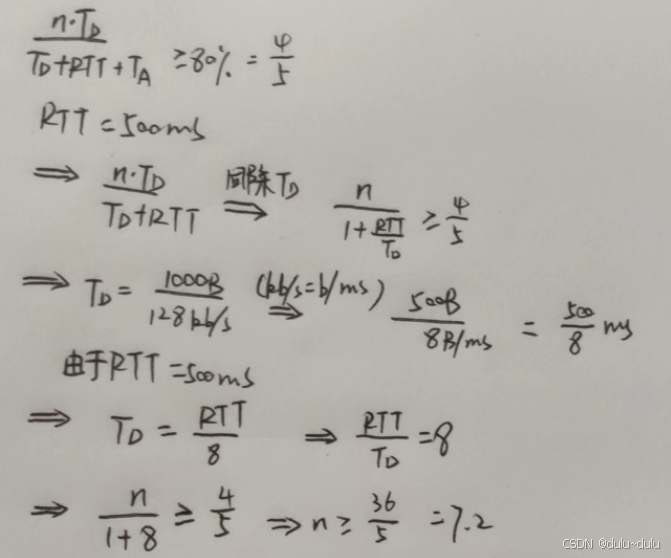 n·T_D / (T_D+RTT+T_A) ≥80% = 4/5
RTT=500ms
⇒ n·T_D / (T_D+RTT) 同除T_D ⇒ n / (1+RTT/T_D) ≥ 4/5
⇒ T_D = 1000B / 128kb/s (kb/s=b/ms) ⇒ 500B / 8B/ms = 500/8 ms
由于RTT=500ms
⇒ T_D = RTT/8 ⇒ RTT/T_D =8
⇒ n / (1+8) ≥ 4/5 ⇒ n≥ 36/5 =7.2
CSDN @dulu~dulu